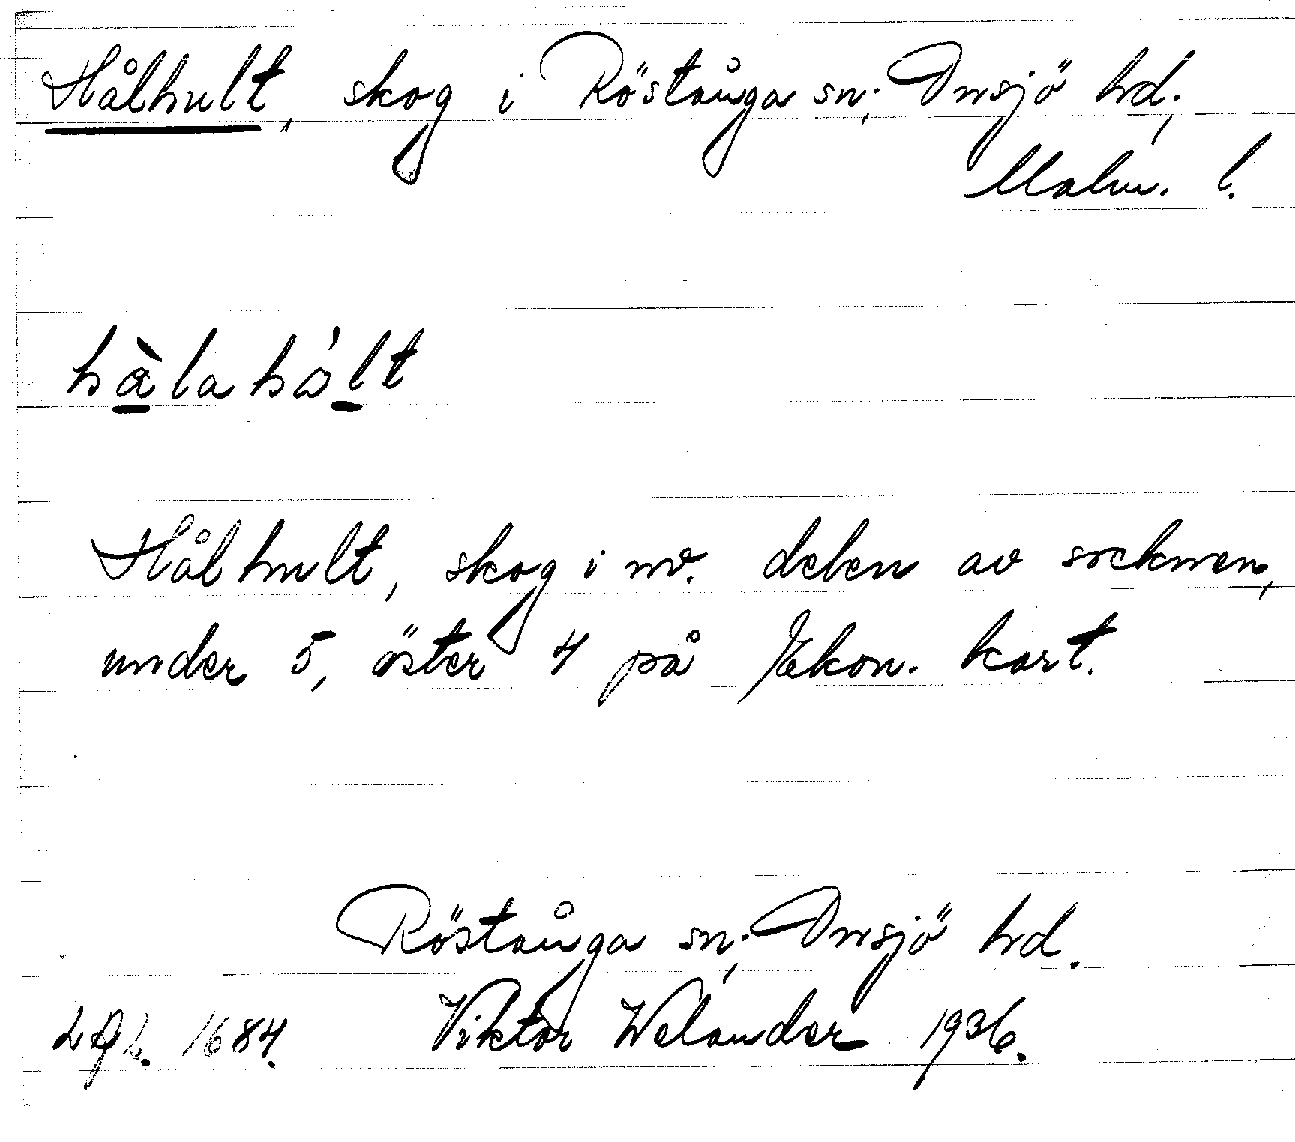 Hålhult, skog i Röstånga sn; Onsjö hd;
Malm. l.
hàlahólt
Hålhult, skog i nv. delen av socknen,
under 5, öster 4 på Ekon. kart.
Röstånga sn; Onsjö hd.
1684. Viktor Welander 1936.